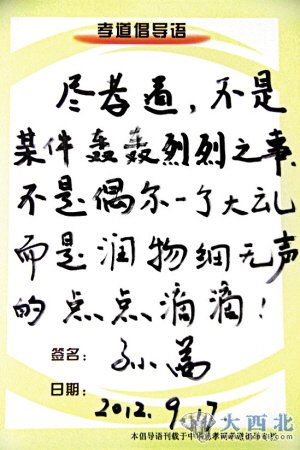 孝道倡导语
尽孝道，不是
某件轰轰烈烈之事，
不是偶尔一个大礼
而是润物细无声
的点点滴滴！
签名：孙
日期：2012.9.17
大西北
本倡导语刊载于中